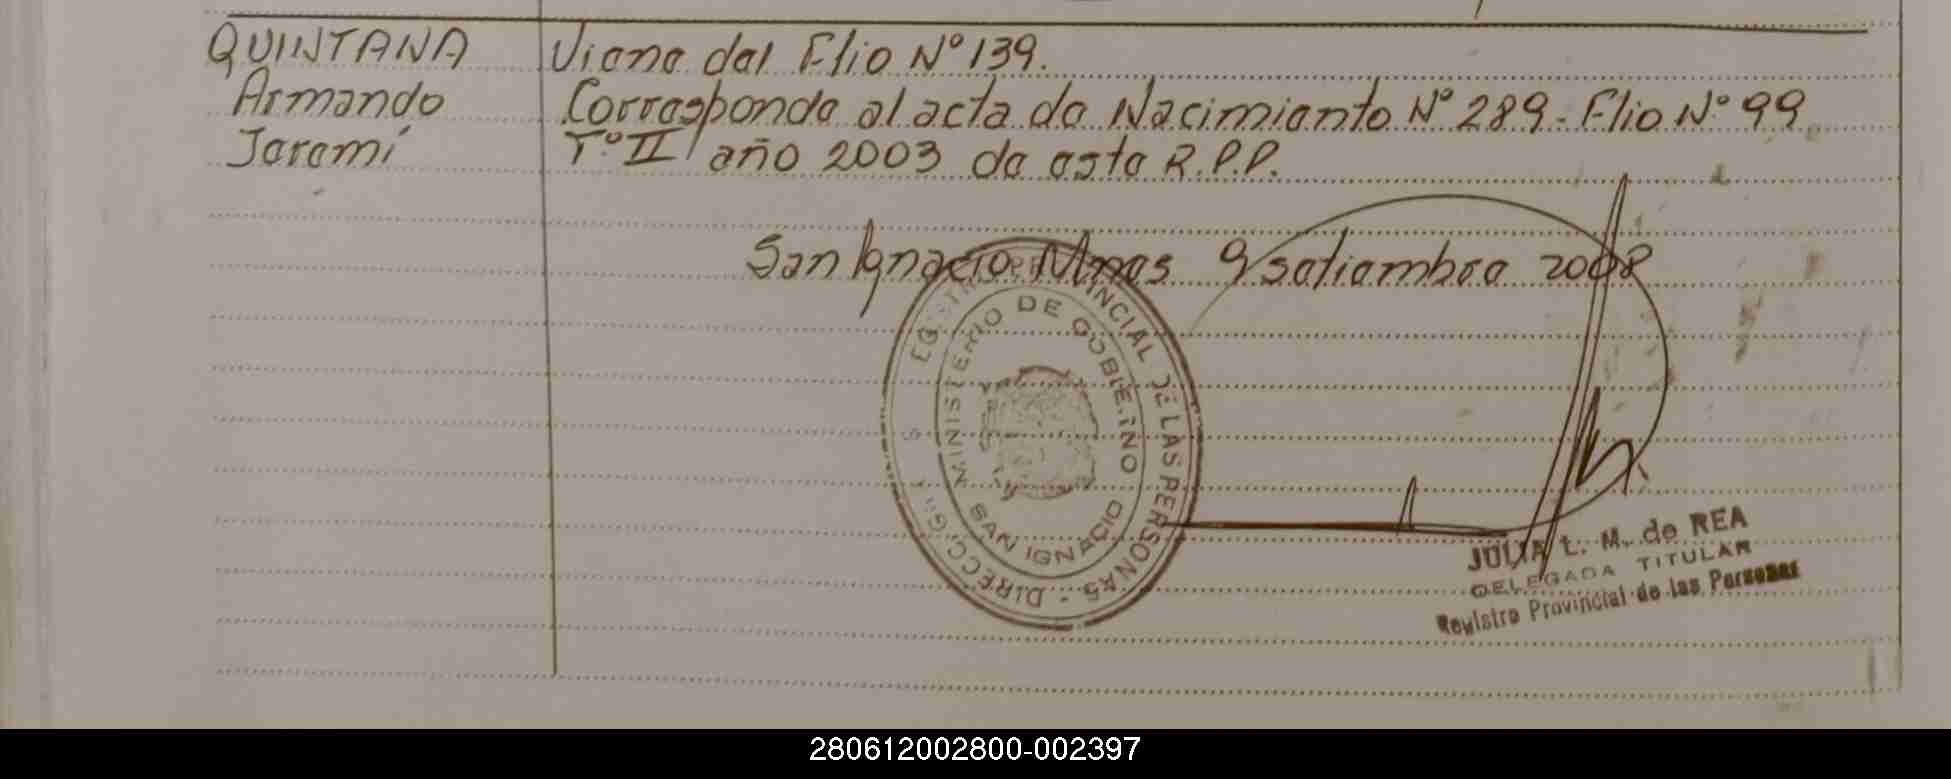 QUINTANA Viene del Flio Nº 139.
Armando Corresponde al acta de Nacimiento Nº 289 - Flio Nº 99
Jeremí Tº II año 2003 de esta R.P.P.
San Ignacio Mnes 9 setiembre 2008
MINISTERIO DE GOBIERNO
SAN IGNACIO
PROVINCIAL DE LAS PERSONAS - DIRECC. G
JULIA L. M. de REA
DELEGADA TITULAR
Registro Provincial de las Personas
280612002800-002397